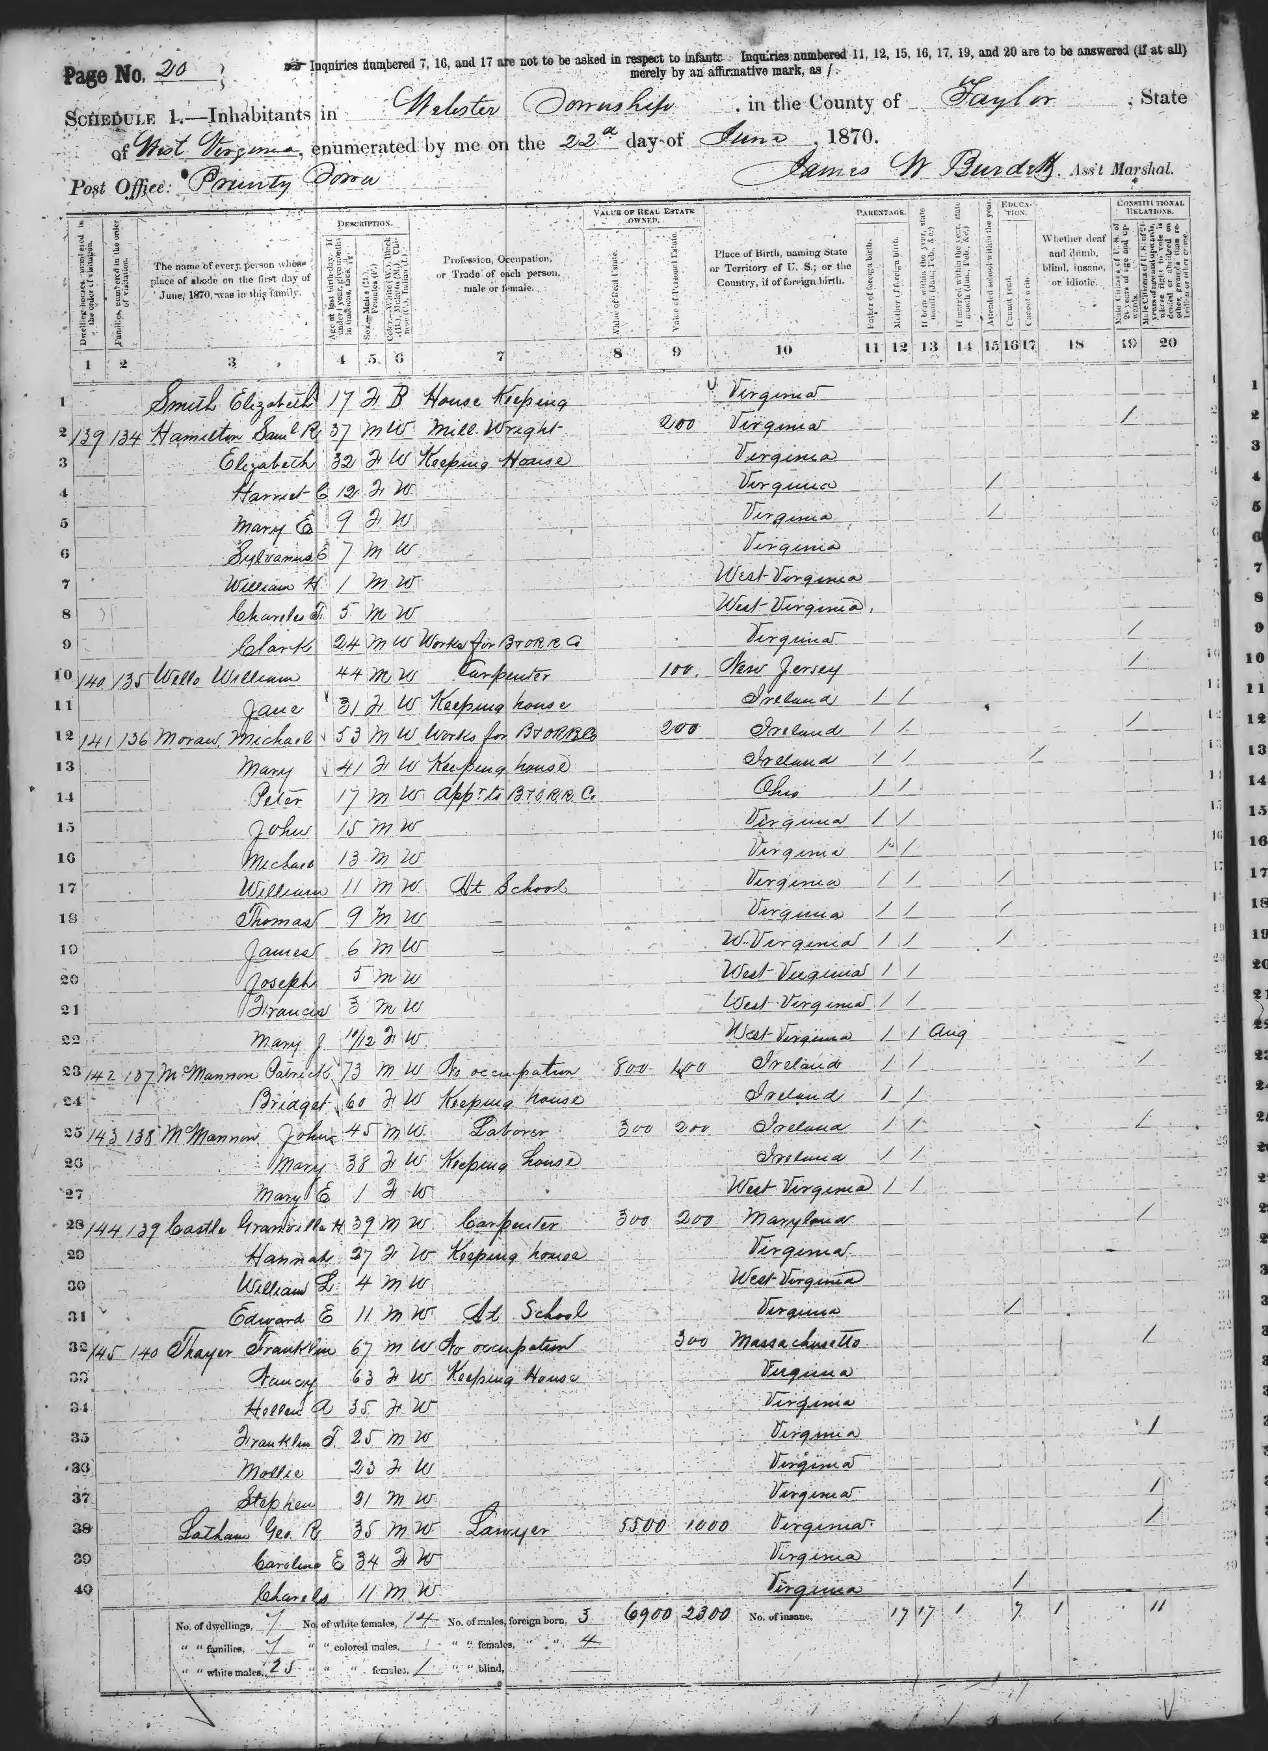 Page No. 20
Inquiries numbered 7, 16, and 17 are not to be asked in respect to infants. Inquiries numbered 11, 12, 15, 16, 17, 19, and 20 are to be answered (if at all)
merely by an affirmative mark, as /.
SCHEDULE 1.—Inhabitants in Webster Township, in the County of Taylor, State
of West Virginia, enumerated by me on the 22d day of June, 1870.
Post Office: Prunty Town James W Burdett, Ass't Marshal.
DESCRIPTION. VALUE OF REAL ESTATE OWNED. PARENTAGE. EDUCATION. CONSTITUTIONAL RELATIONS.
Dwelling-houses, numbered in the order of visitation.
Families, numbered in the order of visitation.
The name of every person whose place of abode on the first day of June, 1870, was in this family.
Profession, Occupation, or Trade of each person, male or female.
Value of Real Estate.
Value of Personal Estate.
Place of Birth, naming State or Territory of U. S.; or the Country, if of foreign birth.
Father of foreign birth.
Mother of foreign birth.
Attended school within the year.
Cannot read.
Cannot write.
Whether deaf and dumb, blind, insane, or idiotic.
1 2 3 4 5 6 7 8 9 10 11 12 13 14 15 16 17 18 19 20
1 Smith Elizabeth 17 F B House Keeping Virginia
2 139 134 Hamilton Saml R 37 M W Mill Wright 200 Virginia 1
3 Elizabeth 32 F W Keeping House Virginia
4 Harriet C 12 F W Virginia /
5 Mary E 9 F W Virginia /
6 Sylvanus E 7 M W Virginia
7 William H 1 M W West Virginia
8 Charles T. 5 M W West Virginia
9 Clark 24 M W Works for B & O R R Co Virginia /
10 140 135 Wells William 44 M W Carpenter 100 New Jersey /
11 Jane 31 F W Keeping house Ireland / /
12 141 136 Moran Michael 53 M W Works for B & O R R Co 200 Ireland / / /
13 Mary 41 F W Keeping house Ireland / / /
14 Peter 17 M W App. to B & O R.R. Co Ohio / /
15 John 15 M W Virginia / /
16 Michael 13 M W Virginia / /
17 William 11 M W At School Virginia / / /
18 Thomas 9 M W Virginia / / /
19 James 6 M W W. Virginia / / /
20 Joseph 5 M W West Virginia / /
21 Francis 3 M W West Virginia / /
22 Mary J. 10/12 F W West Virginia / / Aug
23 142 137 McMannon Patrick 73 M W No occupation 800 400 Ireland / / /
24 Bridget 60 F W Keeping house Ireland / /
25 143 138 McMannon John 45 M W Laborer 300 200 Ireland / / /
26 Mary 38 F W Keeping house Ireland / /
27 Mary E 1 F W West Virginia / /
28 144 139 Castle Granville H 39 M W Carpenter 300 200 Maryland /
29 Hannah 27 F W Keeping house Virginia
30 William L. 4 M W West Virginia
31 Edward E 11 M W At School Virginia /
32 145 140 Thayer Franklin 67 M W No occupation 300 Massachusetts /
33 Nancy 63 F W Keeping House Virginia
34 Hellen A 35 F W Virginia
35 Franklin T. 25 M W Virginia /
36 Mollie 23 F W Virginia
37 Stephen 21 M W Virginia /
38 Latham Geo. R 35 M W Lawyer 5500 1000 Virginia /
39 Caroline E 34 F W Virginia
40 Charels 11 M W Virginia /
No. of dwellings, 7 No. of white females, 14 No. of males, foreign born, 3 6900 2300 No. of insane, 17 17 1 7 1 11
" " families, 7 " " colored males, " " females, " " 4
" " white males, 25 " " " females, 1 " " blind,